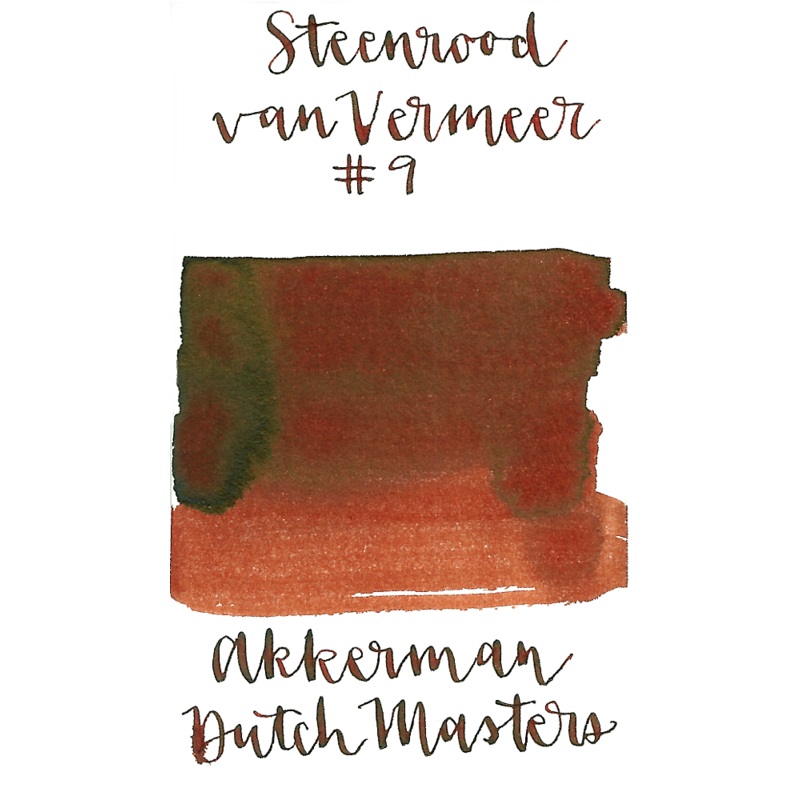 Steenrood
van Vermeer
#9
Akkerman
Dutch Masters